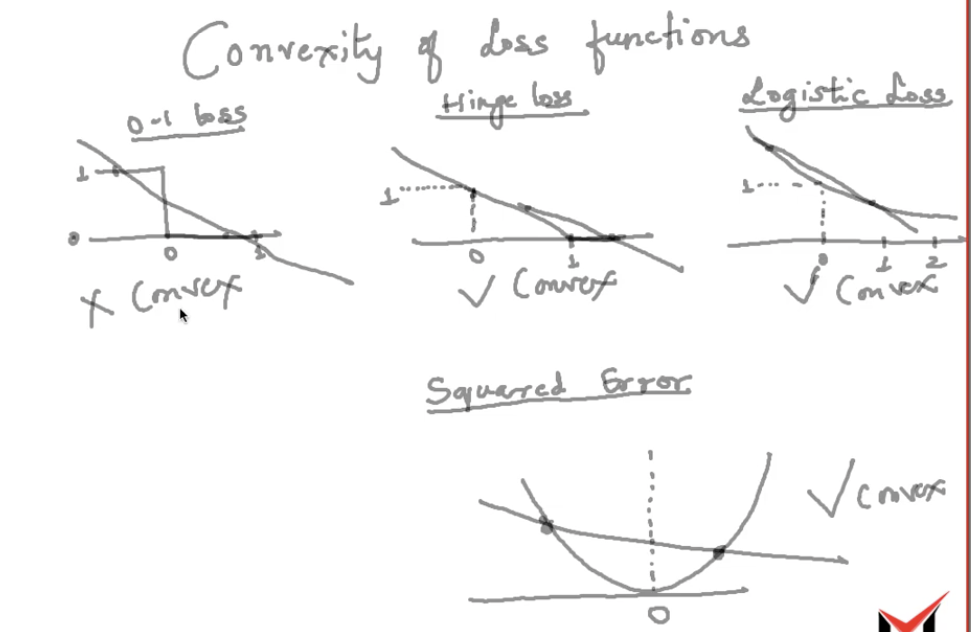 Convexity of Loss functions
0-1 loss
1
0
0
1
X Convex
Hinge loss
1
0
1
√ Convex
Logistic Loss
1
0
1
2
√ Convex
Squared Error
√ Convex
0